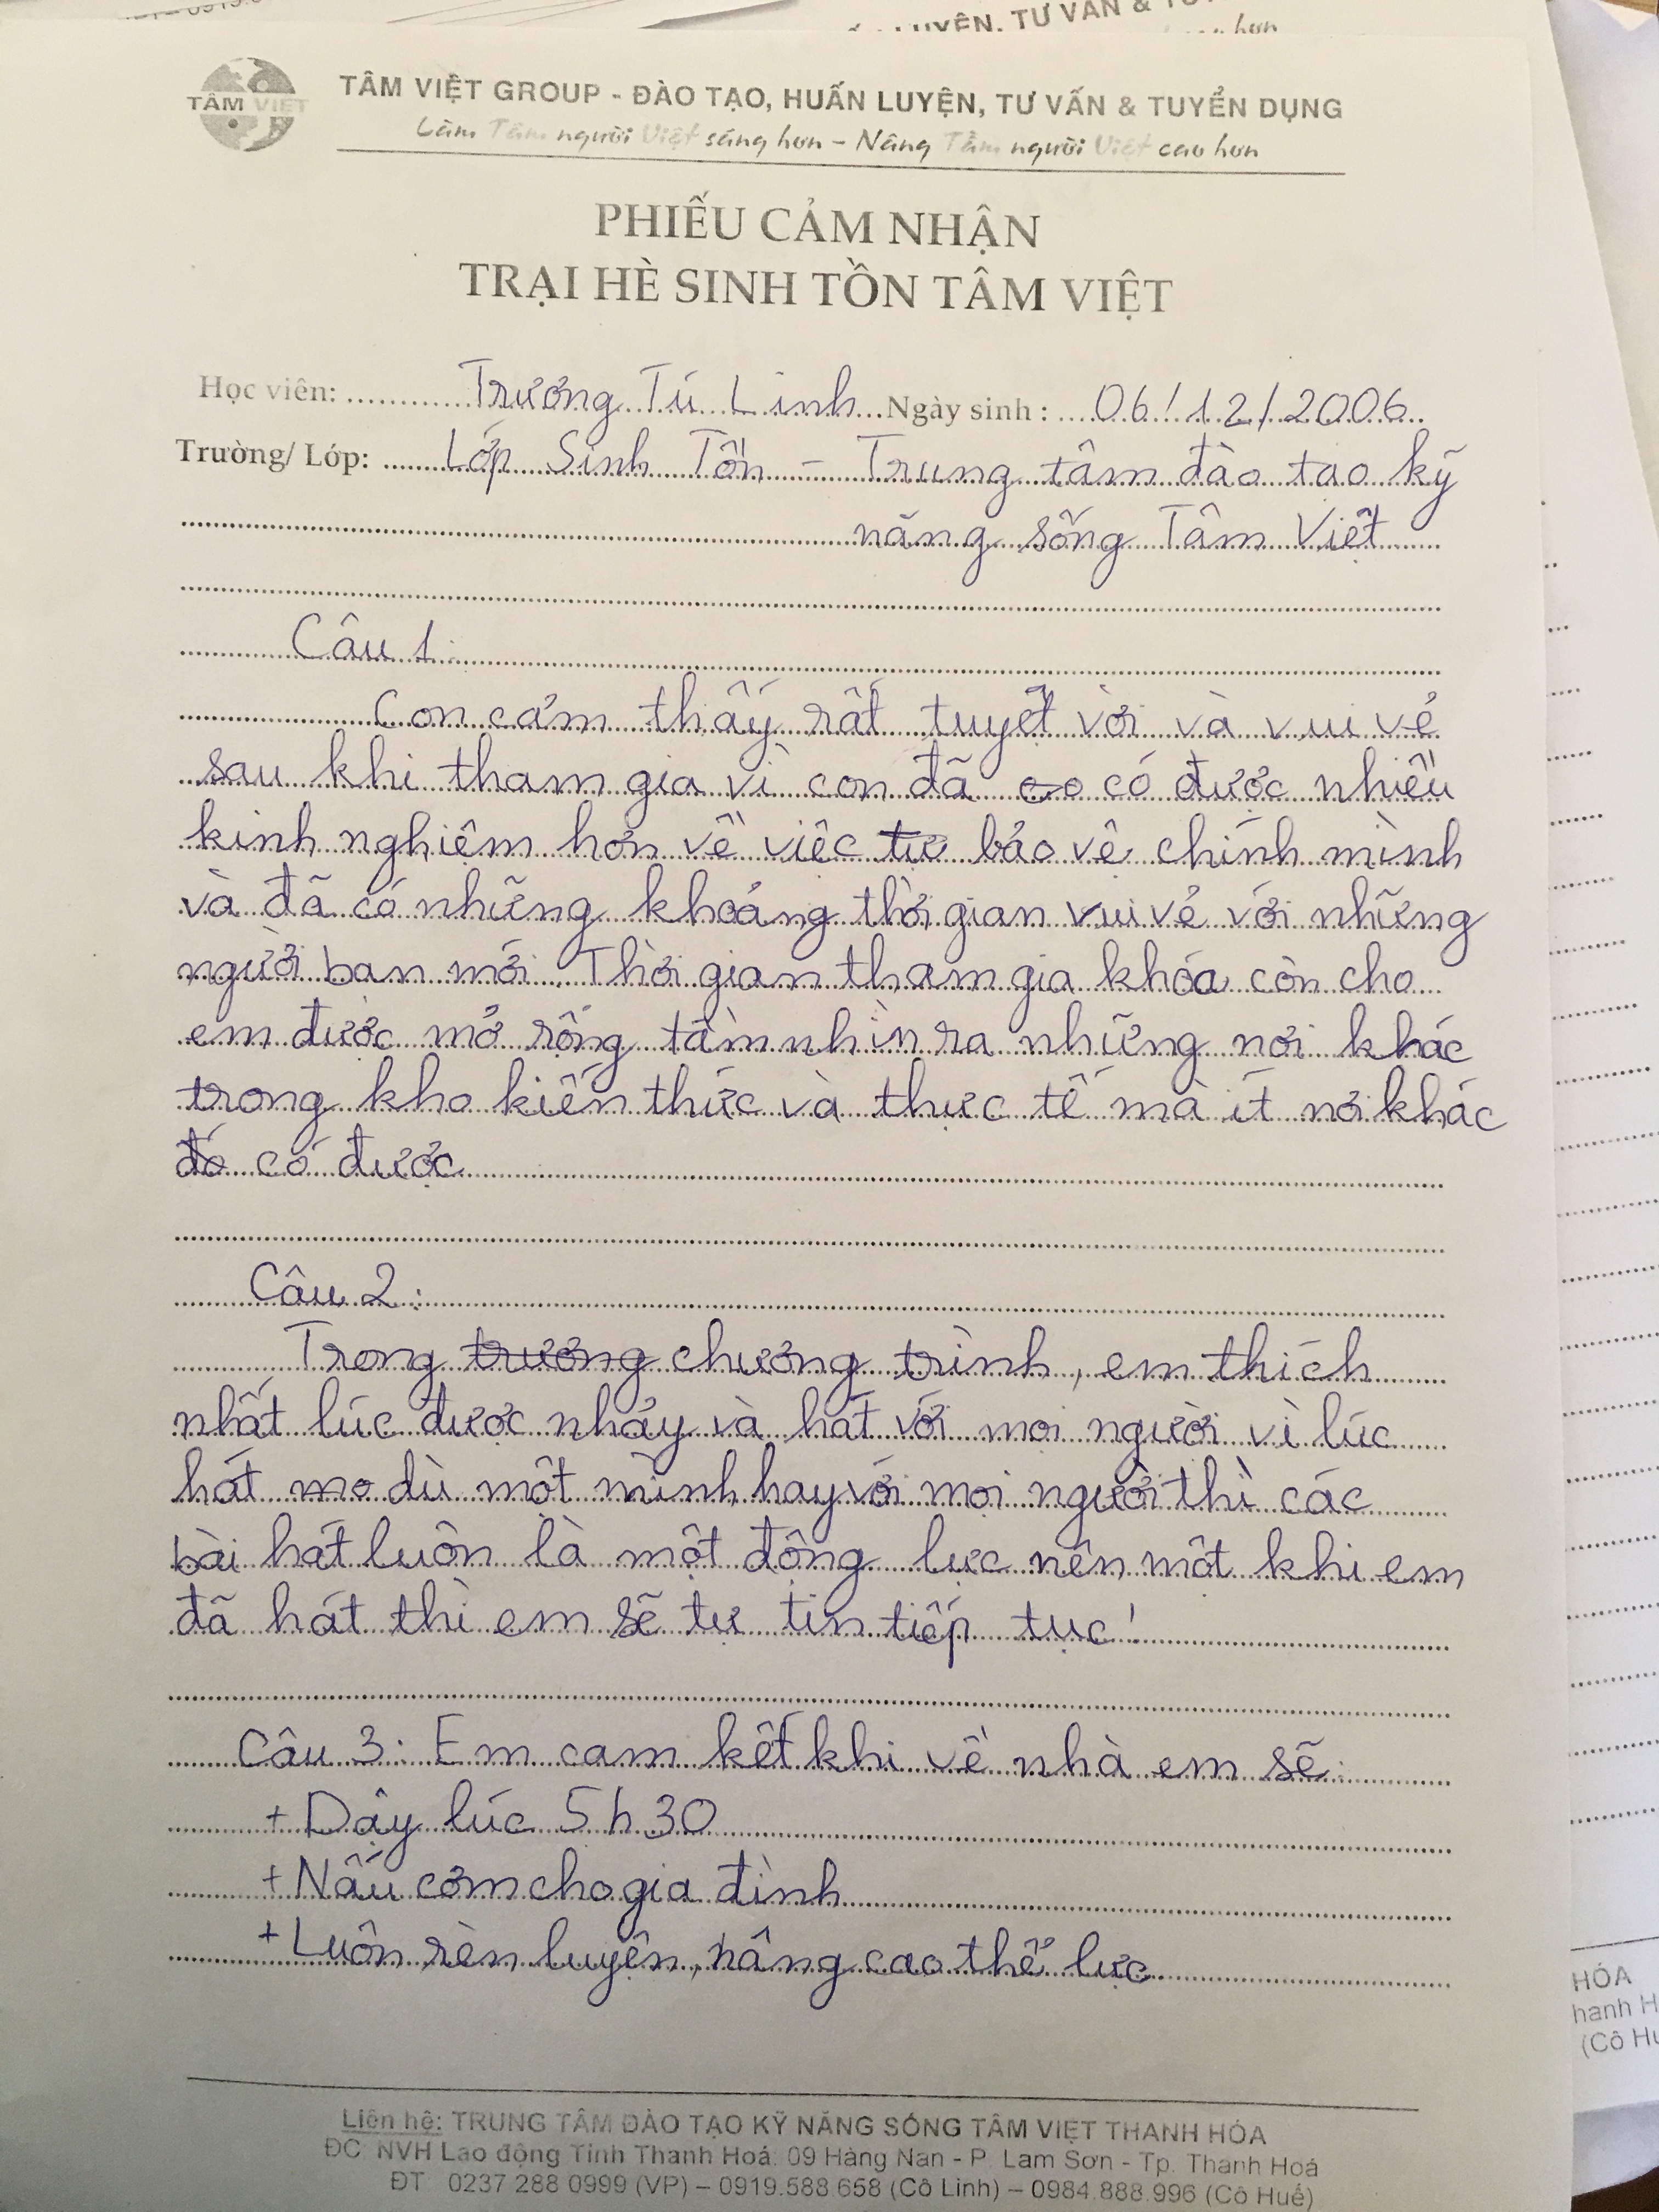 LUYỆN, TƯ VẤN &
hơn
TÂM VIỆT
TÂM VIỆT GROUP - ĐÀO TẠO, HUẤN LUYỆN, TƯ VẤN & TUYỂN DỤNG
Làm Tâm người Việt sáng hơn - Nâng Tầm người Việt cao hơn
PHIẾU CẢM NHẬN
TRẠI HÈ SINH TỒN TÂM VIỆT
Học viên: Trương Tú Linh Ngày sinh : 06/12/2006
Trường/ Lớp: Lớp Sinh Tồn - Trung tâm đào tạo kỹ
năng sống Tâm Việt
Câu 1:
Con cảm thấy rất tuyệt vời và vui vẻ
sau khi tham gia vì con đã co có được nhiều
kinh nghiêm hơn về việc tự bảo vệ chính mình
và đã có những khoảng thời gian vui vẻ với những
người bạn mới. Thời gian tham gia khóa còn cho
em được mở rộng tầm nhìn ra những nơi khác
trong kho kiến thức và thực tế mà ít nơi khác
đó có được
Câu 2:
Trong trương chương trình, em thích
nhất lúc được nhảy và hát với mọi người vì lúc
hát mo dù một mình hay với mọi người thì các
bài hát luôn là một động lực nên một khi em
đã hát thì em sẽ tự tin tiếp tục!
Câu 3: Em cam kết khi về nhà em sẽ:
+ Dậy lúc 5h30
+ Nấu cơm cho gia đình
+ Luôn rèn luyện, nâng cao thể lực
Liên hệ: TRUNG TÂM ĐÀO TẠO KỸ NĂNG SỐNG TÂM VIỆT THANH HÓA
ĐC: NVH Lao động Tỉnh Thanh Hoá: 09 Hàng Nan - P. Lam Sơn - Tp. Thanh Hoá
ĐT: 0237 288 0999 (VP) – 0919.588.658 (Cô Linh) – 0984.888.996 (Cô Huế)
HÓA
hanh H
(Cô Hu